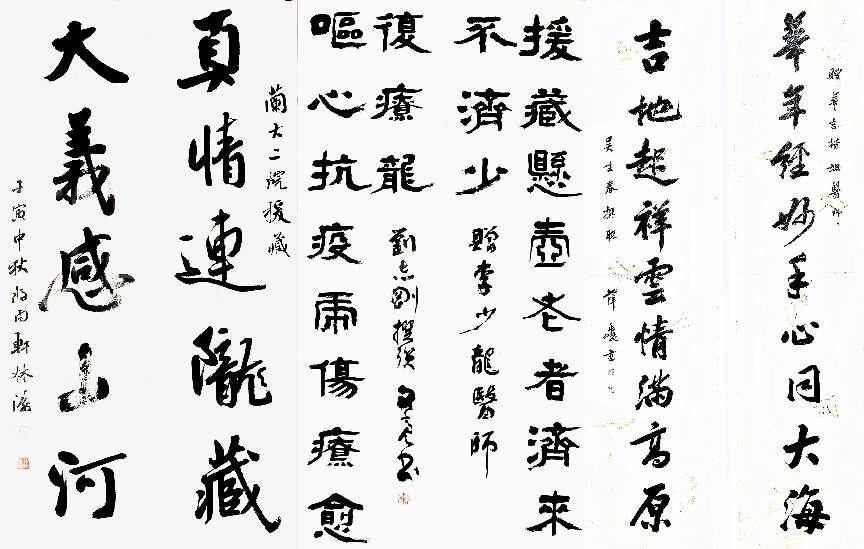 贈華吉措姐醫師
華年經妙手心同大海
吉地起祥雲情滿高原
吴生春撰联 薛慶書
援藏懸壺老者濟來
不濟少
贈李少龍醫師
嘔心抗疫虎傷療愈
復療龍
劉志剛撰联 書
蘭大二院援藏
真情連隴藏
大義感山河
壬寅中秋 軒林濤